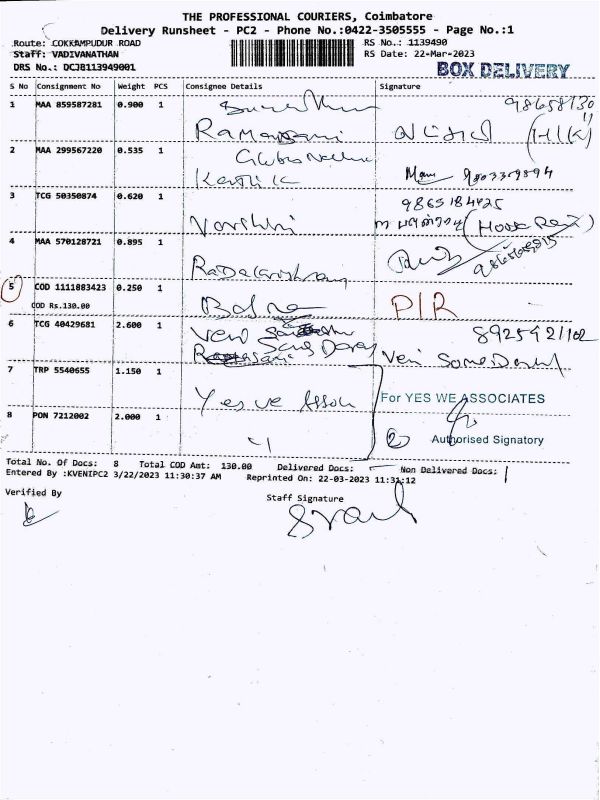 THE PROFESSIONAL COURIERS, Coimbatore
Delivery Runsheet - PC2 - Phone No.:0422-3505555 - Page No.:1
Route: COKKAMPUDUR ROAD
RS No.: 1139490
Staff: VADIVANATHAN
RS Date: 22-Mar-2023
DRS No.: DCJB113949001
BOX DELIVERY
S No Consignment No Weight PCS Consignee Details Signature
1 MAA 859587281 0.900 1
2 MAA 299567220 0.535 1
Karthik
3 TCG 50350874 0.620 1
9865184425
Varshini
4 MAA 570128721 0.895 1
5 COD 1111883423 0.250 1
COD Rs.130.00
P/R
6 TCG 40429681 2.600 1
8925421102
7 TRP 5540655 1.150 1
Yes we Assou
For YES WE ASSOCIATES
8 PON 7212002 2.000 1
2 Authorised Signatory
Total No. Of Docs: 8 Total COD Amt: 130.00 Delivered Docs: Non Delivered Docs: 1
Entered By :KVENIPC2 3/22/2023 11:30:37 AM Reprinted On: 22-03-2023 11:31:12
Verified By
Staff Signature